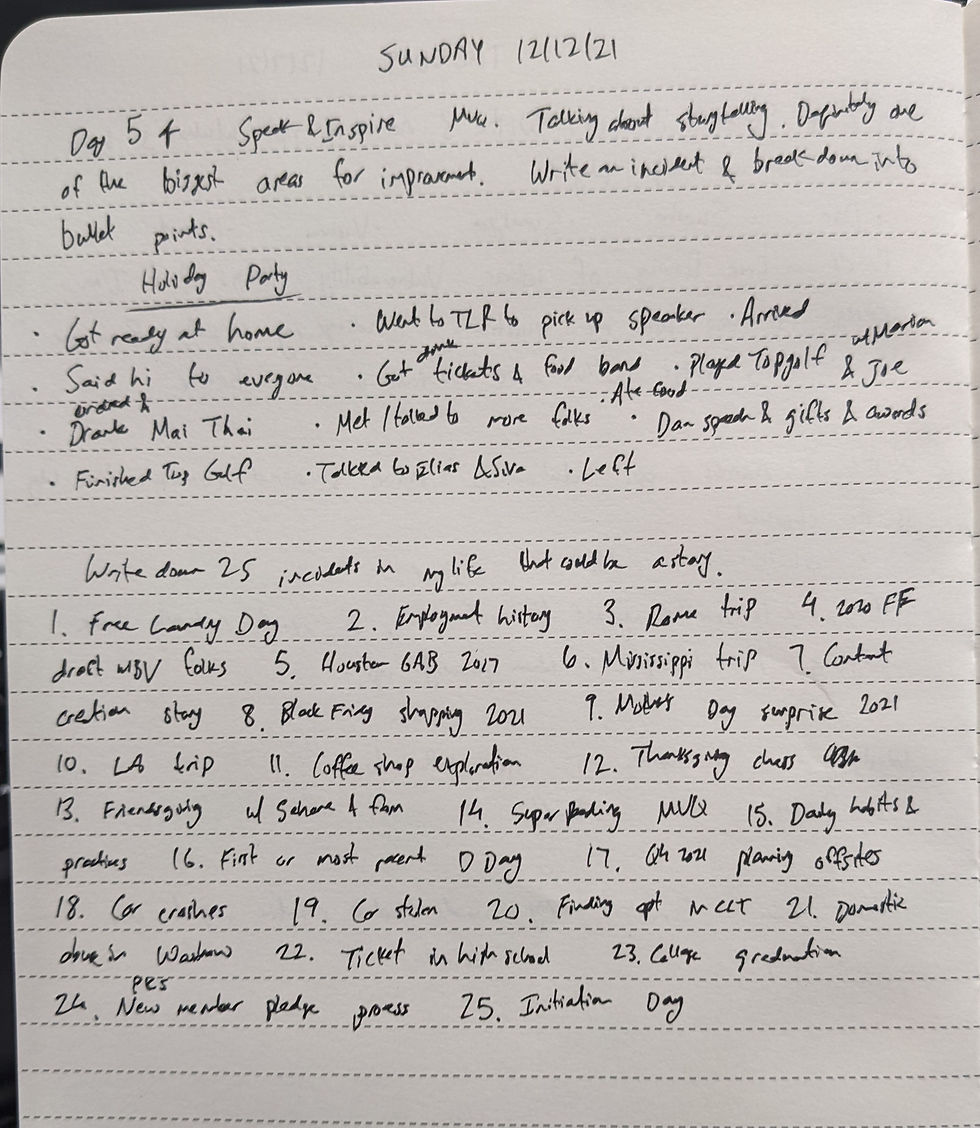 SUNDAY 12/12/21
Day 5 of Speak & Inspire MVQ. Talking about storytelling. Definitely one
of the biggest areas for improvement. Write an incident & break down into
bullet points.
Holiday Party
· Got ready at home · Went to TLR to pick up speaker · Arrived
· Said hi to everyone · Got drink tickets & food band · Played Topgolf w/ Marion & Joe
· ordered & Drank Mai Thai · Met / talked to more folks · Ate food · Dan speech & gifts & awards
· Finished Top Golf · Talked to Elias & Siva · Left
Write down 25 incidents in my life that could be a story.
1. Free Landry Day 2. Employment history 3. Rome trip 4. 2020 FF
draft w/ BV folks 5. Houston GAB 2017 6. Mississippi trip 7. Content
creation story 8. Black Friday shopping 2021 9. Mothers Day surprise 2021
10. LA trip 11. Coffee shop exploration 12. Thanksgiving chess
13. Friendsgiving w/ & fam 14. Super Reading MVQ 15. Daily habits &
practices 16. First or most recent D Day 17. Q4 2021 planning offsites
18. Car crashes 19. Car stolen 20. Finding apt in CLT 21. Domestic
abuse in 22. Ticket in high school 23. College graduation
24. PKS New member pledge process 25. Initiation Day